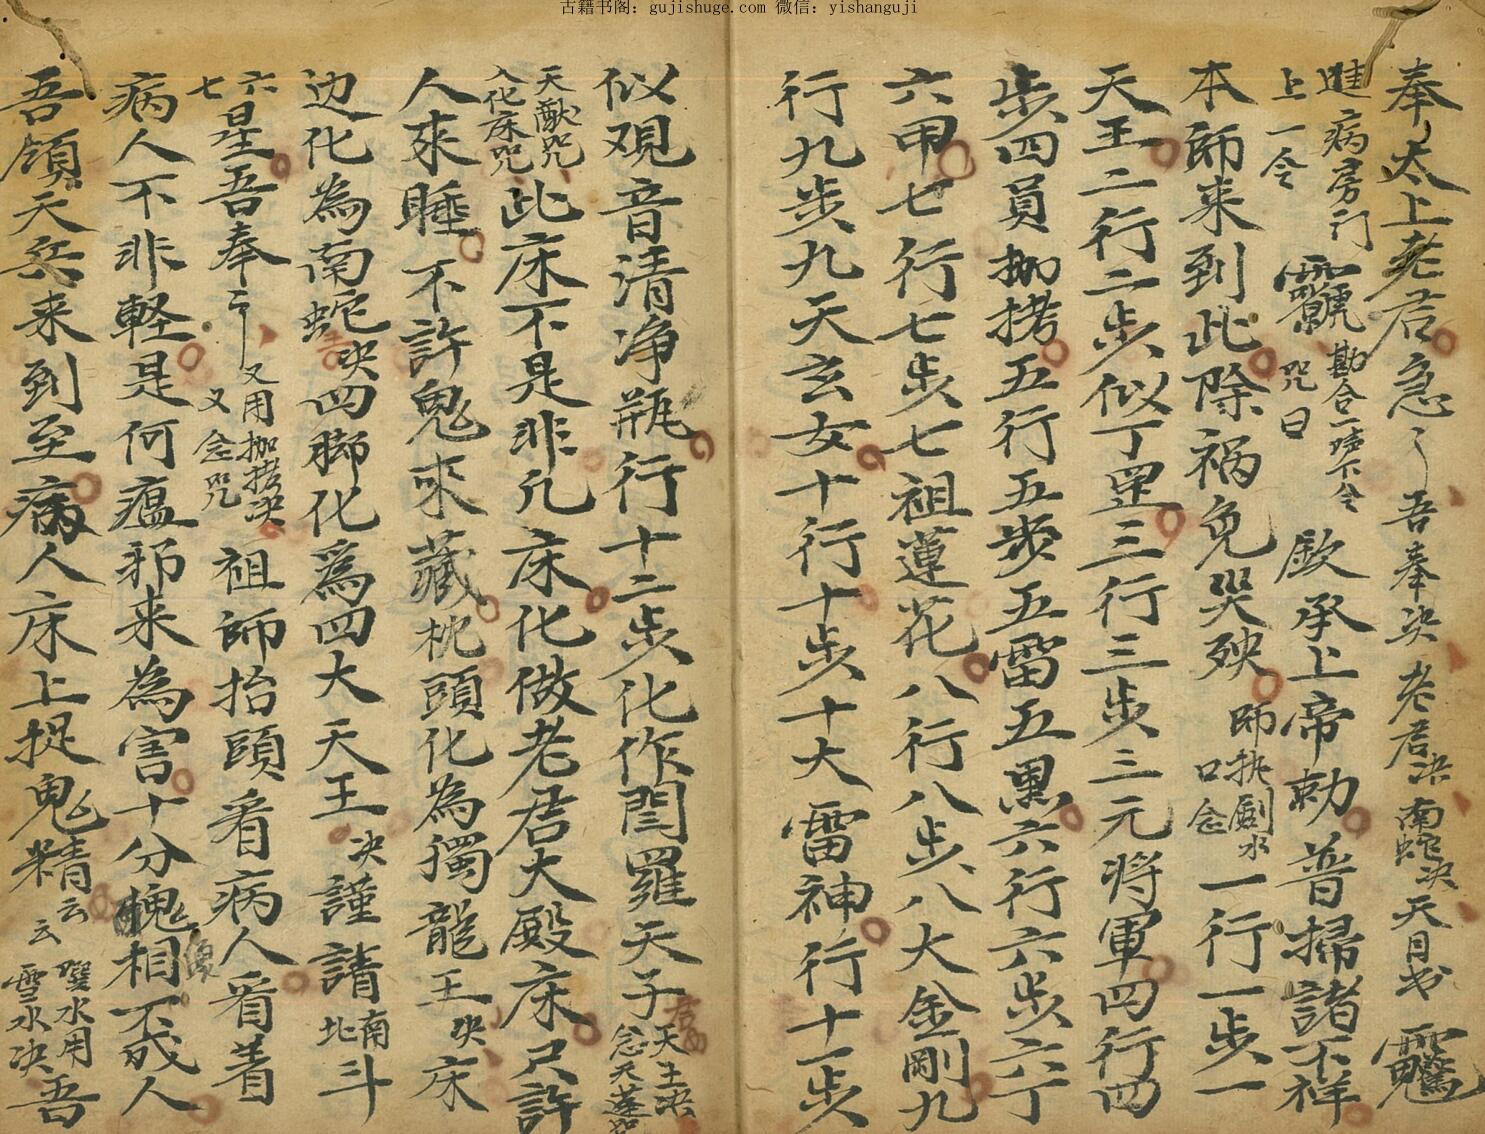 古籍书阁：gujishuge.com 微信：yishanguji
奉太上老君急〻吾奉决 老君决 南蛇决 天月书
進病房门 上一令 勘合一唪下令 咒曰 欽承上帝勅普掃諸不祥
本師来到此除祸免哭殃 師执劍水口念 一行一步一
天王二行二步似丁罡三行三步三元将軍四行四
步四員枷拷五行五步五雷五黑六行六步六丁
六甲七行七步七祖蓮花八行八步八大金剛九
行九步九天玄女十行十步十大雷神行十一步
似观音清净瓶行十二步化作閆羅天子 天主决 念天蓬咒
天猷咒 入化床咒 此床不是非凡床化做老君大殿床只許
人來睡不許鬼來藏枕頭化為獨龍王 决 床
边化為南蛇 决 四脚化為四大天王 决 謹請 南北 斗
六七 星吾奉〻 又用枷拷决 又念咒 祖師抬頭看病人看着
病人不非軽是何瘟邪来為害十分醜相不成人
吾領天兵来到至病人床上捉鬼精 云云 噀水用雪水决 吾